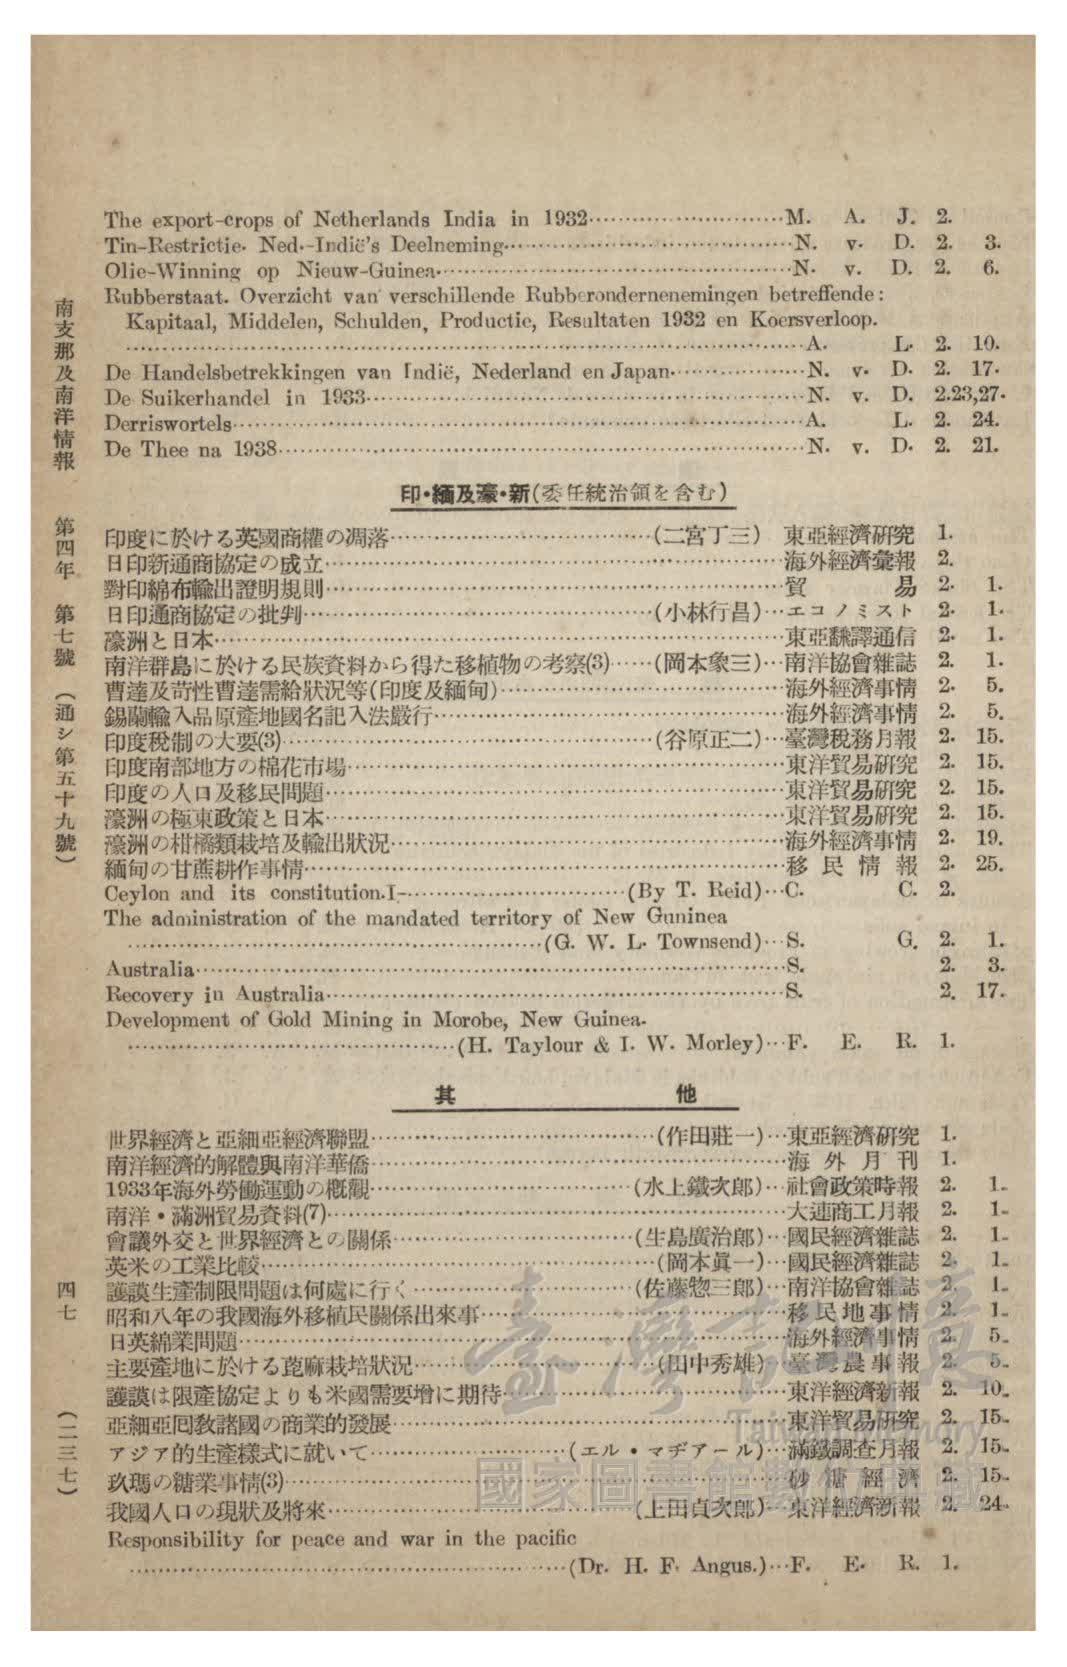 The export-crops of Netherlands India in 1932……M. A. J. 2.
Tin-Restrictie. Ned.-Indië's Deelneming……N. v. D. 2. 3.
Olie-Winning op Nieuw-Guinea……N. v. D. 2. 6.
Rubberstaat. Overzicht van verschillende Rubberondernenemingen betreffende:
Kapitaal, Middelen, Schulden, Productie, Resultaten 1932 en Koersverloop.
……A. L. 2. 10.
De Handelsbetrekkingen van Indië, Nederland en Japan……N. v. D. 2. 17.
De Suikerhandel in 1933……N. v. D. 2.23,27.
Derriswortels……A. L. 2. 24.
De Thee na 1938……N. v. D. 2. 21.
印・緬及濠・新(委任統治領を含む)
印度に於ける英國商權の凋落……(二宮丁三) 東亞經濟硏究 1.
日印新通商協定の成立……海外經濟彙報 2.
對印綿布輸出證明規則……貿易 2. 1.
日印通商協定の批判……(小林行昌)…エコノミスト 2. 1.
濠洲と日本……東亞飜譯通信 2. 1.
南洋群島に於ける民族資料から得た移植物の考察(3)……(岡本象三)…南洋協會雜誌 2. 1.
曹達及苛性曹達需給狀況等(印度及緬甸)……海外經濟事情 2. 5.
錫蘭輸入品原產地國名記入法嚴行……海外經濟事情 2. 5.
印度稅制の大要(3)……(谷原正二)…臺灣稅務月報 2. 15.
印度南部地方の棉花市場……東洋貿易硏究 2. 15.
印度の人口及移民問題……東洋貿易硏究 2. 15.
濠洲の極東政策と日本……東洋貿易硏究 2. 15.
濠洲の柑橘類栽培及輸出狀況……海外經濟事情 2. 19.
緬甸の甘蔗耕作事情……移民情報 2. 25.
Ceylon and its constitution.I-……(By T. Reid)…C. C. 2.
The administration of the mandated territory of New Guninea
……(G. W. L. Townsend)…S. G. 2. 1.
Australia……S. 2. 3.
Recovery in Australia……S. 2. 17.
Development of Gold Mining in Morobe, New Guinea.
……(H. Taylour & I. W. Morley)…F. E. R. 1.
其他
世界經濟と亞細亞經濟聯盟……(作田莊一)…東亞經濟硏究 1.
南洋經濟的解體與南洋華僑……海外月刊 1.
1933年海外勞働運動の槪觀……(水上鐵次郎)…社會政策時報 2. 1.
南洋・滿洲貿易資料(7)……大連商工月報 2. 1.
會議外交と世界經濟との關係……(生島廣治郎)…國民經濟雜誌 2. 1.
英米の工業比較……(岡本眞一)…國民經濟雜誌 2. 1.
護謨生產制限問題は何處に行く……(佐藤惣三郎)…南洋協會雜誌 2. 1.
昭和八年の我國海外移植民關係出來事……移民地事情 2. 1.
日英綿業問題……海外經濟事情 2. 5.
主要產地に於ける蓖麻栽培狀況……(田中秀雄)…臺灣農事報 2. 5.
護謨は限產協定よりも米國需要增に期待……東洋經濟新報 2. 10.
亞細亞回敎諸國の商業的發展……東洋貿易硏究 2. 15.
アジア的生產樣式に就いて……(エル・マヂアール)…滿鐵調查月報 2. 15.
玖瑪の糖業事情(3)……砂糖經濟 2. 15.
我國人口の現狀及將來……(上田貞次郎)…東洋經濟新報 2. 24.
Responsibility for peace and war in the pacific
……(Dr. H. F. Angus.)…F. E. R. 1.
南支那及南洋情報 第四年 第七號 (通シ第五十九號) 四七 (二三七)
臺灣記憶
Taiwan Memory
國家圖書館數位典藏